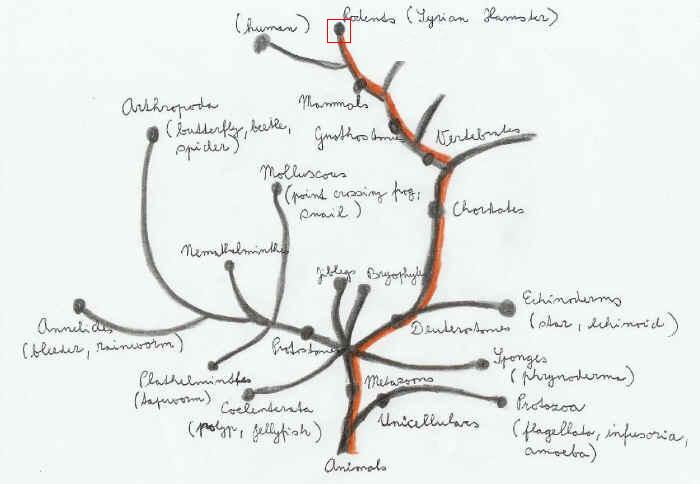 (human)
Rodents (Syrian Hamster)
Arthropoda
(butterfly, beetle,
spider)
Mammals
Gnathostoms
Vertebrates
Molluscous
(point crossing frog,
snail)
Chordates
Nemathelminthes
Jiblegs
Bryophytes
Echinoderms
(star, echinoid)
Annelides
(bleeder, rainworm)
Protostoms
Deuterostomes
Sponges
(phrynoderma)
Plathelminthes
(tapeworm)
Metazoons
Coelenterata
(polyp, jellyfish)
Unicellulars
Protozoa
(flagellata, infusoria,
amoeba)
Animals